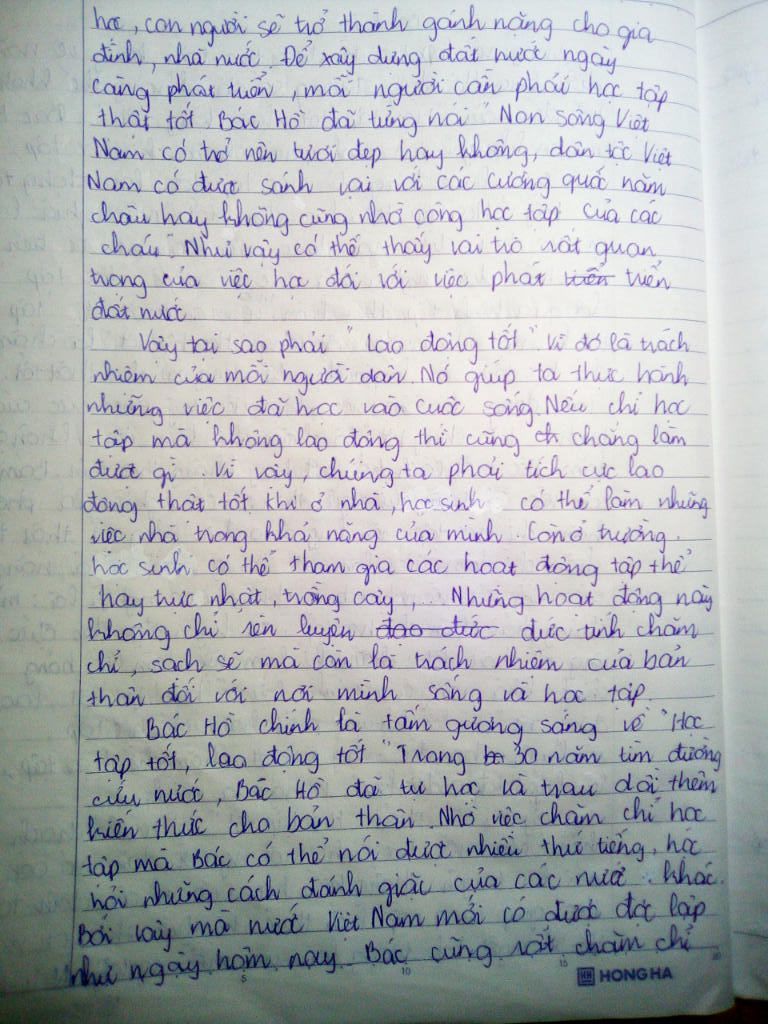 học, con người sẽ trở thành gánh nặng cho gia
đình, nhà nước. Để xây dựng đất nước ngày
càng phát triển, mỗi người cần phải học tập
thật tốt. Bác Hồ đã từng nói "Non sông Việt
Nam có trở nên tươi đẹp hay không, dân tộc Việt
Nam có được sánh vai với các cường quốc năm
châu hay không cũng nhờ công học tập của các
cháu". Như vậy có thể thấy vai trò rất quan
trọng của việc học đối với việc phát triển
đất nước.
Vậy tại sao phải "lao động tốt". Vì đó là trách
nhiệm của mỗi người dân. Nó giúp ta thực hành
những việc đã học vào cuộc sống. Nếu chỉ học
tập mà không lao động thì cũng ch chẳng làm
được gì. Vì vậy, chúng ta phải tích cực lao
động thật tốt. Khi ở nhà, học sinh có thể làm những
việc nhà trong khả năng của mình. Còn ở trường.
học sinh có thể tham gia các hoạt động tập thể
hay trực nhật, trồng cây, ... Những hoạt động này
không chỉ rèn luyện đạo đức đức tính chăm
chỉ, sạch sẽ mà còn là trách nhiệm của bản
thân đối với nơi mình sống và học tập.
Bác Hồ chính là tấm gương sáng về "Học
tập tốt, lao động tốt". Trong 30 năm tìm đường
cứu nước, Bác Hồ đã tự học và trau dồi thêm
kiến thức cho bản thân. Nhờ việc chăm chỉ học
tập mà Bác có thể nói được nhiều thứ tiếng, học
hỏi những cách đánh giặc của các nước khác.
Bởi vậy mà nước Việt Nam mới có được độc lập
như ngày hôm nay. Bác cũng rất chăm chỉ
5 10 15 20
HH HONG HA